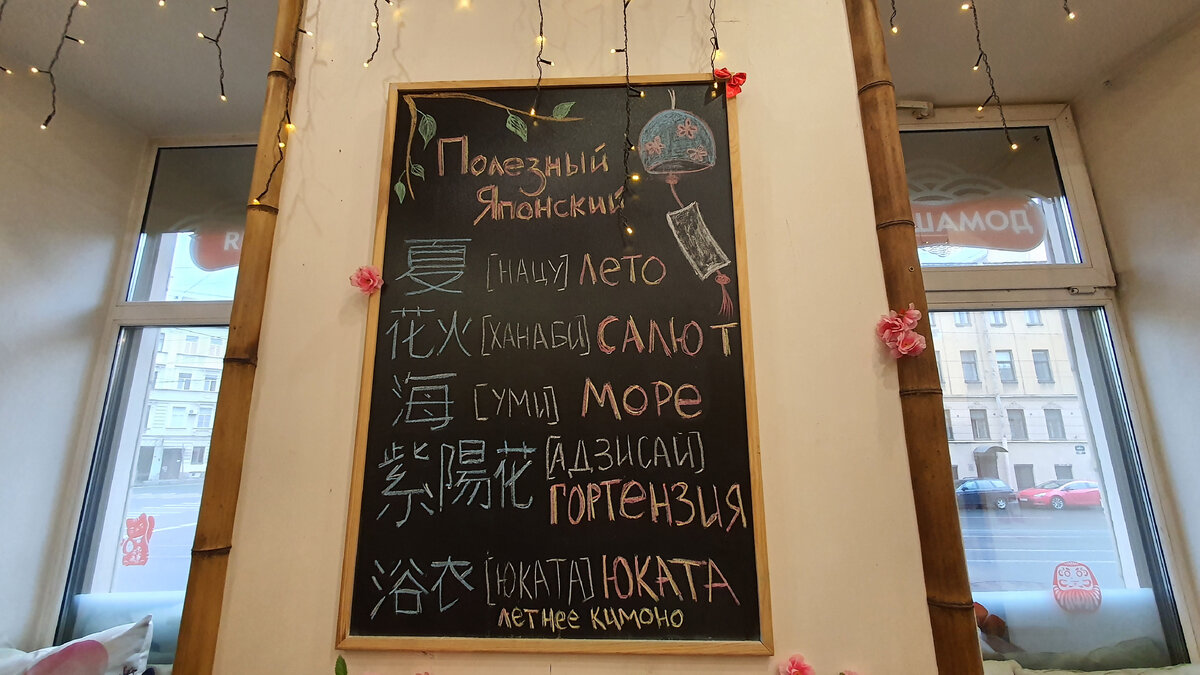 Полезный
Японский
夏 [НАЦУ] ЛЕТО
花火 [ХАНАБИ] САЛЮТ
海 [УМИ] МОРЕ
紫陽花 [АДЗИСАЙ]
ГОРТЕНЗИЯ
浴衣 [ЮКАТА] ЮКАТА
летнее кимоно